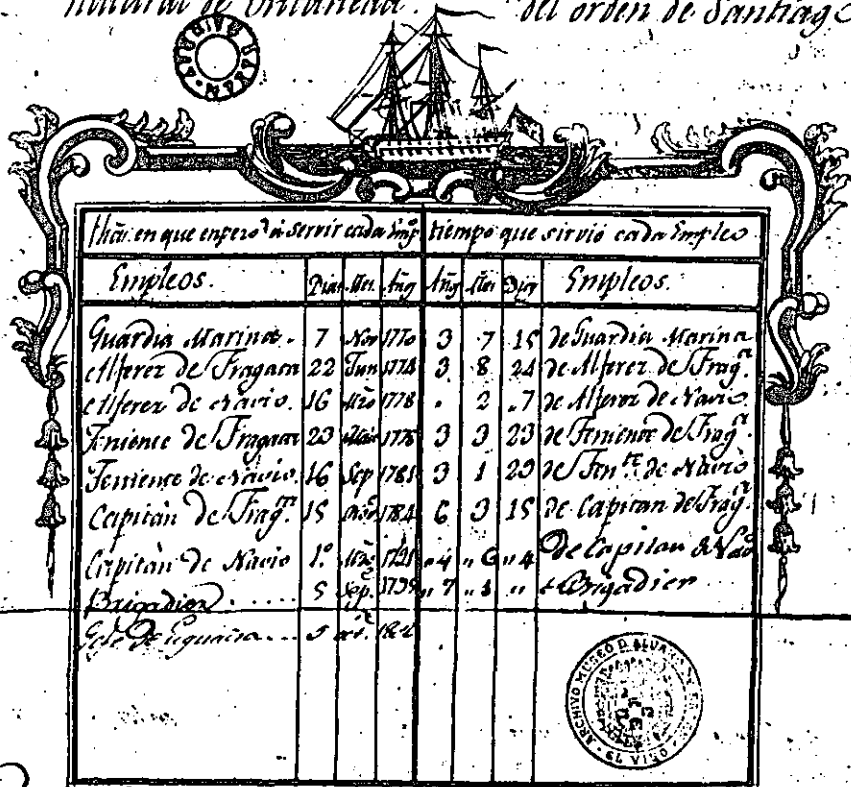 natural de del orden de Santiago
MARINA
fha en que enpezo á servir cada Emp.º tiempo que sirvió cada Empleo
Empleos. Dias Mes. Añs Añs Mes Dias Empleos.
Guardia Marina. 7 Nov 1770 3 7 15 de Guardia Marina
Alferez de Fragata 22 Jun 1774 3 8 24 de Alferez de Frag.ta
Alferez de Navio. 16 Mzo 1778 . 2 .7 de Alferez de Navio
Teniente de Fragata 23 1778 3 3 23 de Teniente de Frag.ta
Teniente de Navio. 16 Sep 1781 3 1 29 de Ten.te de Navio
Capitan de Frag.ta 15 1784 6 3 15 de Capitan de Frag.ta
Capitan de Navio 1.º 1791 "4 "6 "4 de Capitan de Nav
Brigadier 5 Sep. 1795 "7 "1 " Brigadier
de 5
ARCHIVO MUSEO D. ALVARO